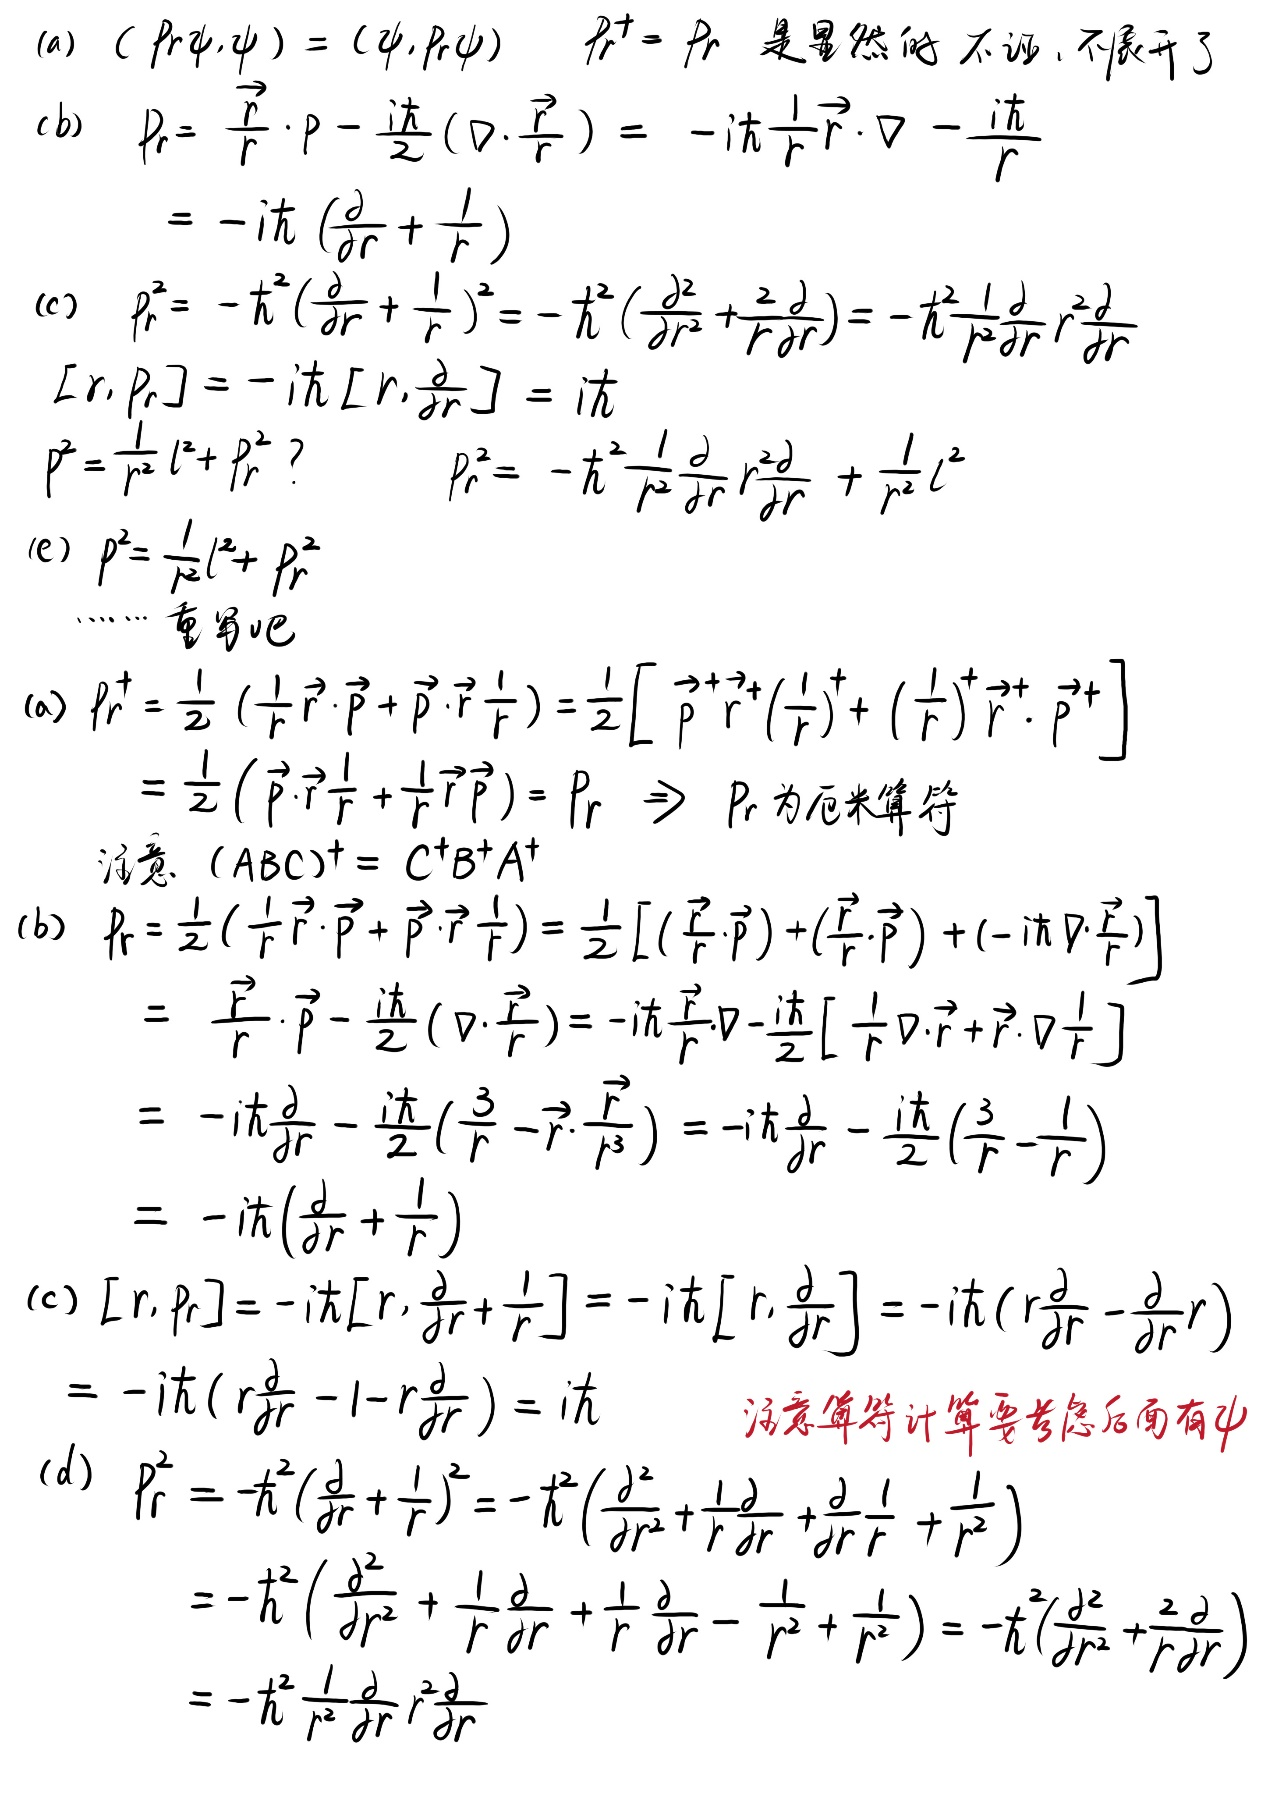 (a) (p_r ψ, ψ) = (ψ, p_r ψ)   p_r^+ = p_r 是显然的 不证、不展开了
(b) p_r = \frac{\vec{r}}{r} · p − \frac{iħ}{2} (∇ · \frac{\vec{r}}{r}) = −iħ \frac{1}{r} \vec{r} · ∇ − \frac{iħ}{r}
= −iħ (\frac{∂}{∂r} + \frac{1}{r})
(c) p_r^2 = −ħ^2 (\frac{∂}{∂r} + \frac{1}{r})^2 = −ħ^2 (\frac{∂^2}{∂r^2} + \frac{2}{r} \frac{∂}{∂r}) = −ħ^2 \frac{1}{r^2} \frac{∂}{∂r} r^2 \frac{∂}{∂r}
[r, p_r] = −iħ [r, \frac{∂}{∂r}] = iħ
p^2 = \frac{1}{r^2} l^2 + p_r^2 ?   p_r^2 = −ħ^2 \frac{1}{r^2} \frac{∂}{∂r} r^2 \frac{∂}{∂r} + \frac{1}{r^2} l^2
(e) p^2 = \frac{1}{r^2} l^2 + p_r^2
…… 重写吧
(a) p_r^+ = \frac{1}{2} (\frac{1}{r} \vec{r} · \vec{p} + \vec{p} · \vec{r} \frac{1}{r}) = \frac{1}{2} [\vec{p}^+ \vec{r}^+ (\frac{1}{r})^+ + (\frac{1}{r})^+ \vec{r}^+ · \vec{p}^+]
= \frac{1}{2} (\vec{p} · \vec{r} \frac{1}{r} + \frac{1}{r} \vec{r} \vec{p}) = p_r ⇒ p_r 为厄米算符
注意 (ABC)^+ = C^+ B^+ A^+
(b) p_r = \frac{1}{2} (\frac{1}{r} \vec{r} · \vec{p} + \vec{p} · \vec{r} \frac{1}{r}) = \frac{1}{2} [(\frac{\vec{r}}{r} · \vec{p}) + (\frac{\vec{r}}{r} · \vec{p}) + (−iħ ∇ · \frac{\vec{r}}{r})]
= \frac{\vec{r}}{r} · \vec{p} − \frac{iħ}{2} (∇ · \frac{\vec{r}}{r}) = −iħ \frac{\vec{r}}{r} · ∇ − \frac{iħ}{2} [\frac{1}{r} ∇ · \vec{r} + \vec{r} · ∇ \frac{1}{r}]
= −iħ \frac{∂}{∂r} − \frac{iħ}{2} (\frac{3}{r} − \vec{r} · \frac{\vec{r}}{r^3}) = −iħ \frac{∂}{∂r} − \frac{iħ}{2} (\frac{3}{r} − \frac{1}{r})
= −iħ (\frac{∂}{∂r} + \frac{1}{r})
(c) [r, p_r] = −iħ [r, \frac{∂}{∂r} + \frac{1}{r}] = −iħ [r, \frac{∂}{∂r}] = −iħ (r \frac{∂}{∂r} − \frac{∂}{∂r} r)
= −iħ (r \frac{∂}{∂r} − 1 − r \frac{∂}{∂r}) = iħ
注意算符计算要考虑后面有ψ
(d) p_r^2 = −ħ^2 (\frac{∂}{∂r} + \frac{1}{r})^2 = −ħ^2 (\frac{∂^2}{∂r^2} + \frac{1}{r} \frac{∂}{∂r} + \frac{∂}{∂r} \frac{1}{r} + \frac{1}{r^2})
= −ħ^2 (\frac{∂^2}{∂r^2} + \frac{1}{r} \frac{∂}{∂r} + \frac{1}{r} \frac{∂}{∂r} − \frac{1}{r^2} + \frac{1}{r^2}) = −ħ^2 (\frac{∂^2}{∂r^2} + \frac{2}{r} \frac{∂}{∂r})
= −ħ^2 \frac{1}{r^2} \frac{∂}{∂r} r^2 \frac{∂}{∂r}